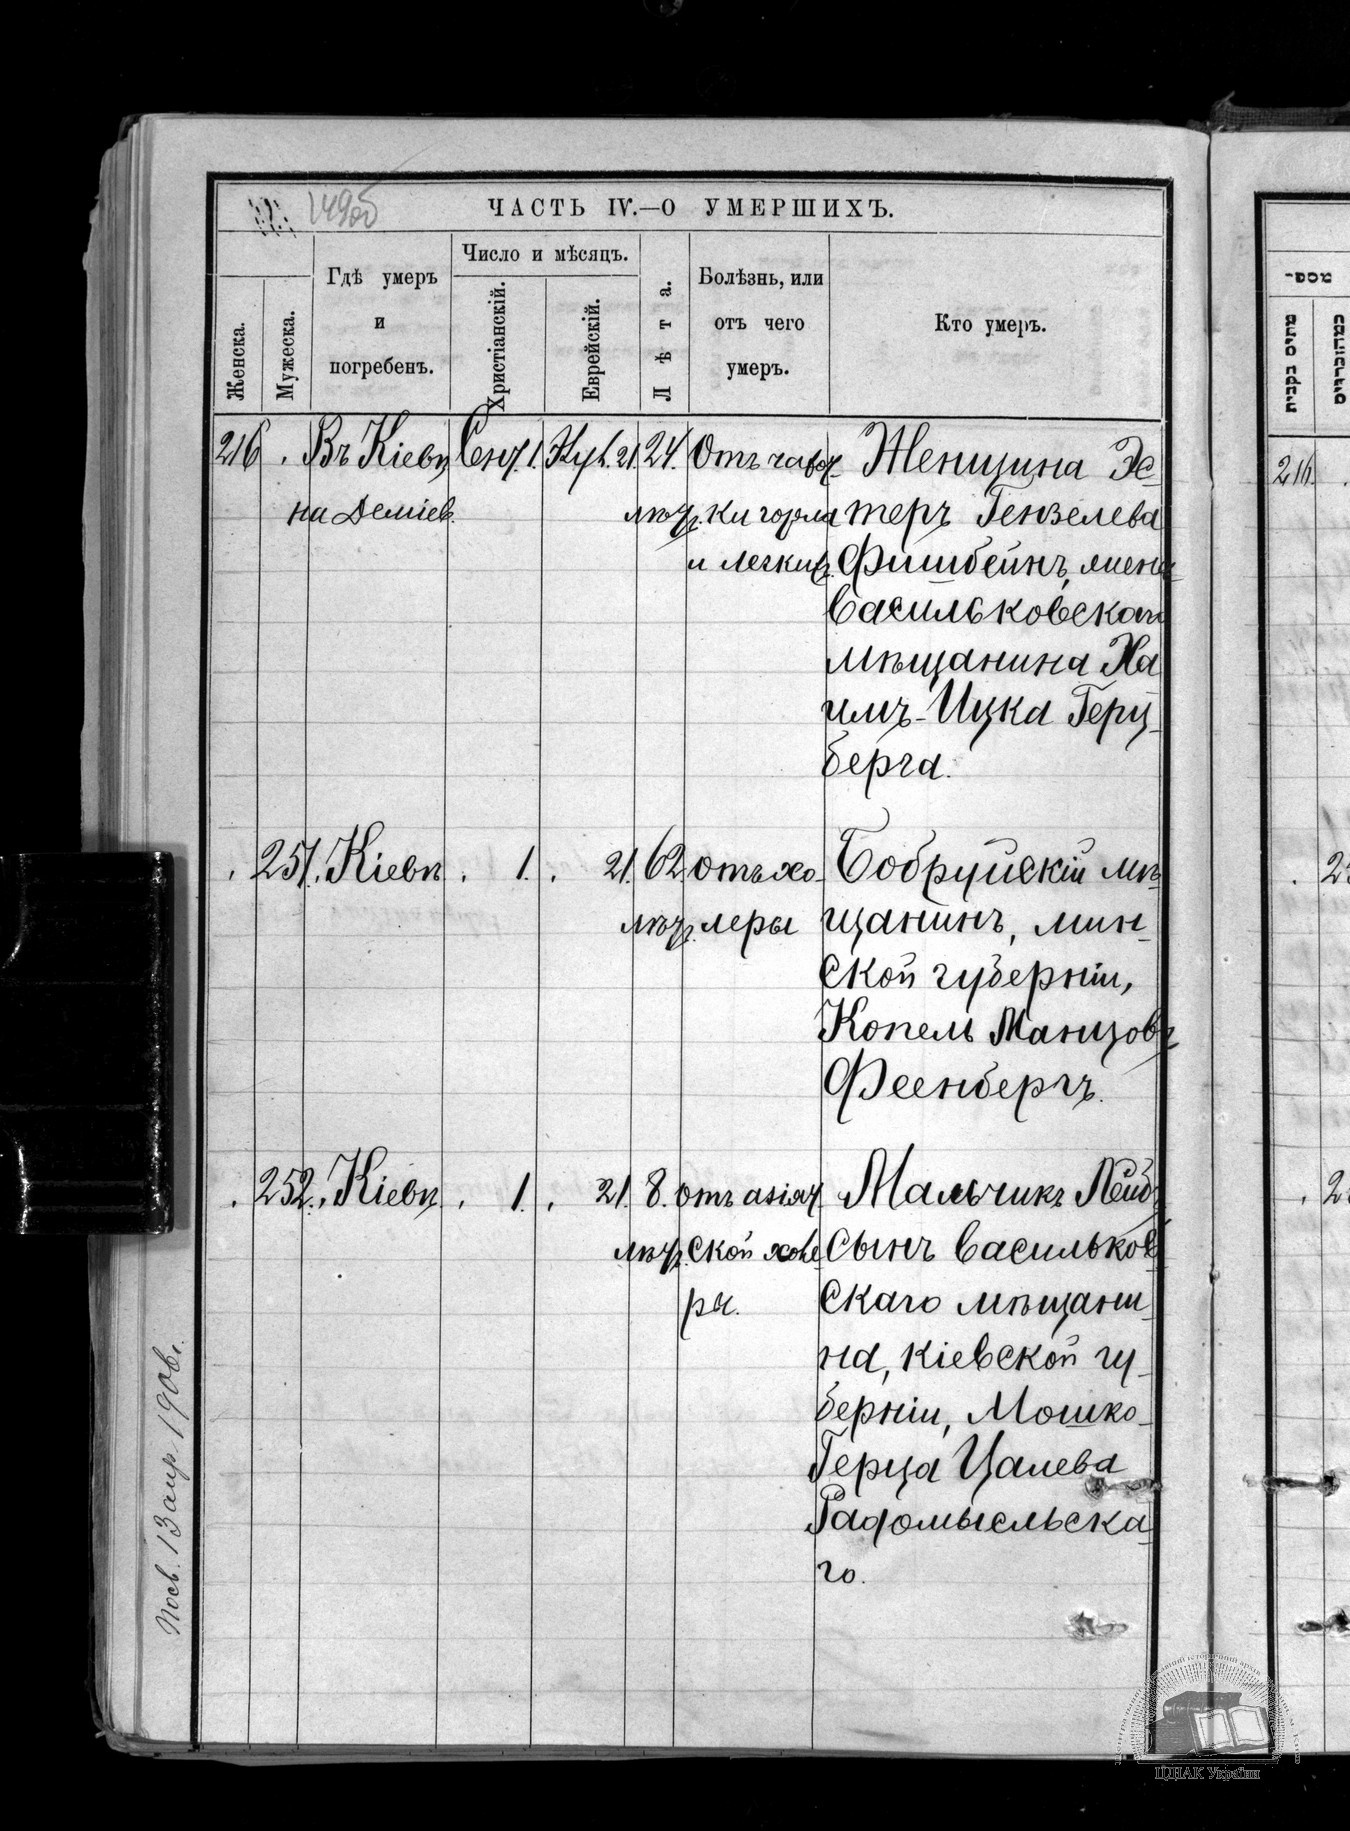 149об
ЧАСТЬ IV.—О УМЕРШИХЪ.
Женска.
Мужеска.
Гдѣ умеръ
и
погребенъ.
Число и мѣсяцъ.
Христіанскій.
Еврейскій.
Лѣта.
Болѣзнь, или
отъ чего
умеръ.
Кто умеръ.
216
Въ Кіевѣ
на Деміев.
1.
21.
24.
лѣтъ.
Отъ
ки горла
и легкихъ.
Женщина Эс-
теръ Гензелева
Фишбейнъ, жена
Васильковскаго
мѣщанина Ха
имъ-Ицка Герц-
берга.
251.
Кіевѣ
1.
21.
62
лѣтъ.
отъ хо-
леры
Бобруйскій мѣ-
щанинъ, мин-
ской губерніи,
Копель Манцовъ
Феенбергъ.
252.
Кіевѣ
1.
21.
8.
лѣтъ.
отъ азіят-
ской холе-
ры.
Мальчикъ Лейбъ
сынъ Васильков-
скаго мѣщани-
на, Кіевской гу-
берніи, Мошко-
Герца Цалева
Радомысльска-
го.
13 апр 1906г.
מתים נקבות
216
ЦДІАК України